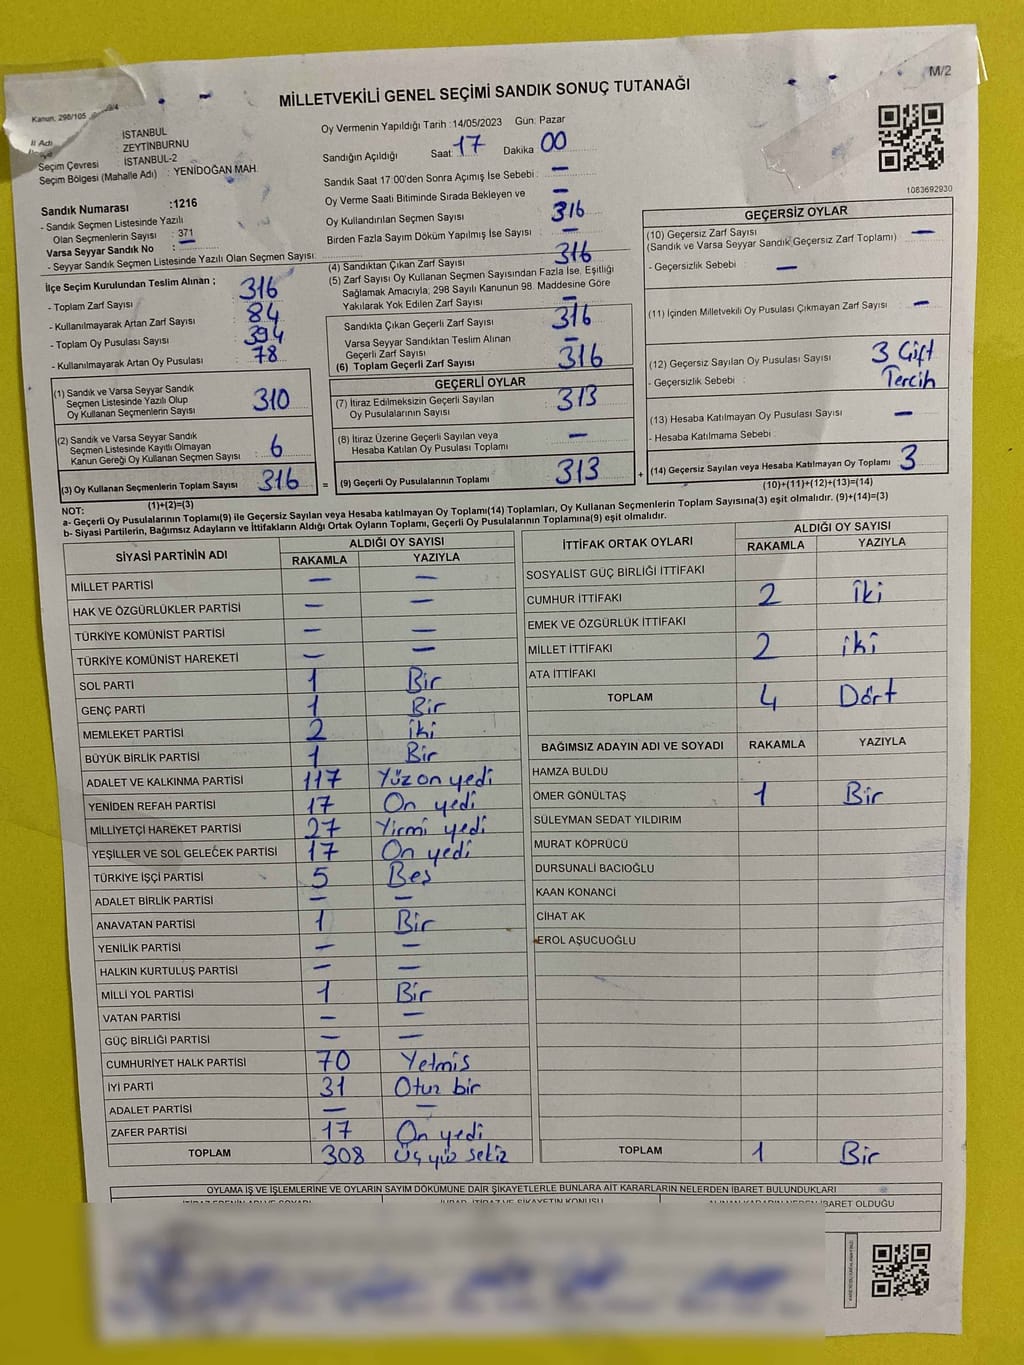 M/2
MİLLETVEKİLİ GENEL SEÇİMİ SANDIK SONUÇ TUTANAĞI
Kanun, 298/105
İl Adı İSTANBUL
ZEYTİNBURNU
Seçim Çevresi : İSTANBUL-2
Seçim Bölgesi (Mahalle Adı) : YENİDOĞAN MAH.
Sandık Numarası :1216
- Sandık Seçmen Listesinde Yazılı
Olan Seçmenlerin Sayısı : 371
Varsa Seyyar Sandık No : —
- Seyyar Sandık Seçmen Listesinde Yazılı Olan Seçmen Sayısı:
Oy Vermenin Yapıldığı Tarih :14/05/2023 Gün: Pazar
Sandığın Açıldığı Saat: 17 Dakika 00
Sandık Saat 17:00'den Sonra Açımış İse Sebebi : —
Oy Verme Saati Bitiminde Sırada Bekleyen ve —
Oy Kullandırılan Seçmen Sayısı 316
Birden Fazla Sayım Döküm Yapılmış İse Sayısı : —
1083692930
İlçe Seçim Kurulundan Teslim Alınan ;
- Toplam Zarf Sayısı : 316
- Kullanılmayarak Artan Zarf Sayısı : 84
- Toplam Oy Pusulası Sayısı : 394
- Kullanılmayarak Artan Oy Pusulası : 78
(1) Sandık ve Varsa Seyyar Sandık
Seçmen Listesinde Yazılı Olup
Oy Kullanan Seçmenlerin Sayısı : 310
(2) Sandık ve Varsa Seyyar Sandık
Seçmen Listesinde Kayıtlı Olmayan
Kanun Gereği Oy Kullanan Seçmen Sayısı : 6
(3) Oy Kullanan Seçmenlerin Toplam Sayısı 316 =
(1)+(2)=(3)
(4) Sandıktan Çıkan Zarf Sayısı 316
(5) Zarf Sayısı Oy Kullanan Seçmen Sayısından Fazla İse, Eşitliği
Sağlamak Amacıyla; 298 Sayılı Kanunun 98. Maddesine Göre
Yakılarak Yok Edilen Zarf Sayısı : —
Sandıkta Çıkan Geçerli Zarf Sayısı : 316
Varsa Seyyar Sandıktan Teslim Alınan
Geçerli Zarf Sayısı : —
(6) Toplam Geçerli Zarf Sayısı : 316
GEÇERLİ OYLAR
(7) İtiraz Edilmeksizin Geçerli Sayılan
Oy Pusulalarının Sayısı : 313
(8) İtiraz Üzerine Geçerli Sayılan veya
Hesaba Katılan Oy Pusulası Toplamı : —
(9) Geçerli Oy Pusulalarının Toplamı : 313 +
GEÇERSİZ OYLAR
(10) Geçersiz Zarf Sayısı : —
(Sandık ve Varsa Seyyar Sandık Geçersiz Zarf Toplamı)
- Geçersizlik Sebebi : —
(11) İçinden Milletvekili Oy Pusulası Çıkmayan Zarf Sayısı : —
(12) Geçersiz Sayılan Oy Pusulası Sayısı : 3 Çift
- Geçersizlik Sebebi : Tercih
(13) Hesaba Katılmayan Oy Pusulası Sayısı : —
- Hesaba Katılmama Sebebi :
(14) Geçersiz Sayılan veya Hesaba Katılmayan Oy Toplamı 3
(10)+(11)+(12)+(13)=(14)
NOT:
a- Geçerli Oy Pusulalarının Toplamı(9) ile Geçersiz Sayılan veya Hesaba katılmayan Oy Toplamı(14) Toplamları, Oy Kullanan Seçmenlerin Toplam Sayısına(3) eşit olmalıdır. (9)+(14)=(3)
b- Siyasi Partilerin, Bağımsız Adayların ve İttifakların Aldığı Ortak Oyların Toplamı, Geçerli Oy Pusulalarının Toplamına(9) eşit olmalıdır.
SİYASİ PARTİNİN ADI ALDIĞI OY SAYISI
RAKAMLA YAZIYLA
MİLLET PARTİSİ — —
HAK VE ÖZGÜRLÜKLER PARTİSİ — —
TÜRKİYE KOMÜNİST PARTİSİ — —
TÜRKİYE KOMÜNİST HAREKETİ — —
SOL PARTİ 1 Bir
GENÇ PARTİ 1 Bir
MEMLEKET PARTİSİ 2 iki
BÜYÜK BİRLİK PARTİSİ 1 Bir
ADALET VE KALKINMA PARTİSİ 117 Yüz on yedi
YENİDEN REFAH PARTİSİ 17 On yedi
MİLLİYETÇİ HAREKET PARTİSİ 27 Yirmi yedi
YEŞİLLER VE SOL GELECEK PARTİSİ 17 On yedi
TÜRKİYE İŞÇİ PARTİSİ 5 Beş
ADALET BİRLİK PARTİSİ — —
ANAVATAN PARTİSİ 1 Bir
YENİLİK PARTİSİ — —
HALKIN KURTULUŞ PARTİSİ — —
MİLLİ YOL PARTİSİ 1 Bir
VATAN PARTİSİ — —
GÜÇ BİRLİĞİ PARTİSİ — —
CUMHURİYET HALK PARTİSİ 70 Yetmiş
İYİ PARTİ 31 Otuz bir
ADALET PARTİSİ — —
ZAFER PARTİSİ 17 On yedi
TOPLAM 308 Üç yüz sekiz
İTTİFAK ORTAK OYLARI ALDIĞI OY SAYISI
RAKAMLA YAZIYLA
SOSYALİST GÜÇ BİRLİĞİ İTTİFAKI
CUMHUR İTTİFAKI 2 iki
EMEK VE ÖZGÜRLÜK İTTİFAKI
MİLLET İTTİFAKI 2 iki
ATA İTTİFAKI
TOPLAM 4 Dört
BAĞIMSIZ ADAYIN ADI VE SOYADI RAKAMLA YAZIYLA
HAMZA BULDU
ÖMER GÖNÜLTAŞ 1 Bir
SÜLEYMAN SEDAT YILDIRIM
MURAT KÖPRÜCÜ
DURSUNALİ BACIOĞLU
KAAN KONANCİ
CİHAT AK
EROL AŞUCUOĞLU
TOPLAM 1 Bir
OYLAMA İŞ VE İŞLEMLERİNE VE OYLARIN SAYIM DÖKÜMÜNE DAİR ŞİKAYETLERLE BUNLARA AİT KARARLARIN NELERDEN İBARET BULUNDUKLARI
İTİRAZ EDENİN ADI SOYADI İTİRAZ VE ŞİKAYETİN KONUSU ALINAN KARARIN NEDEN İBARET OLDUĞU